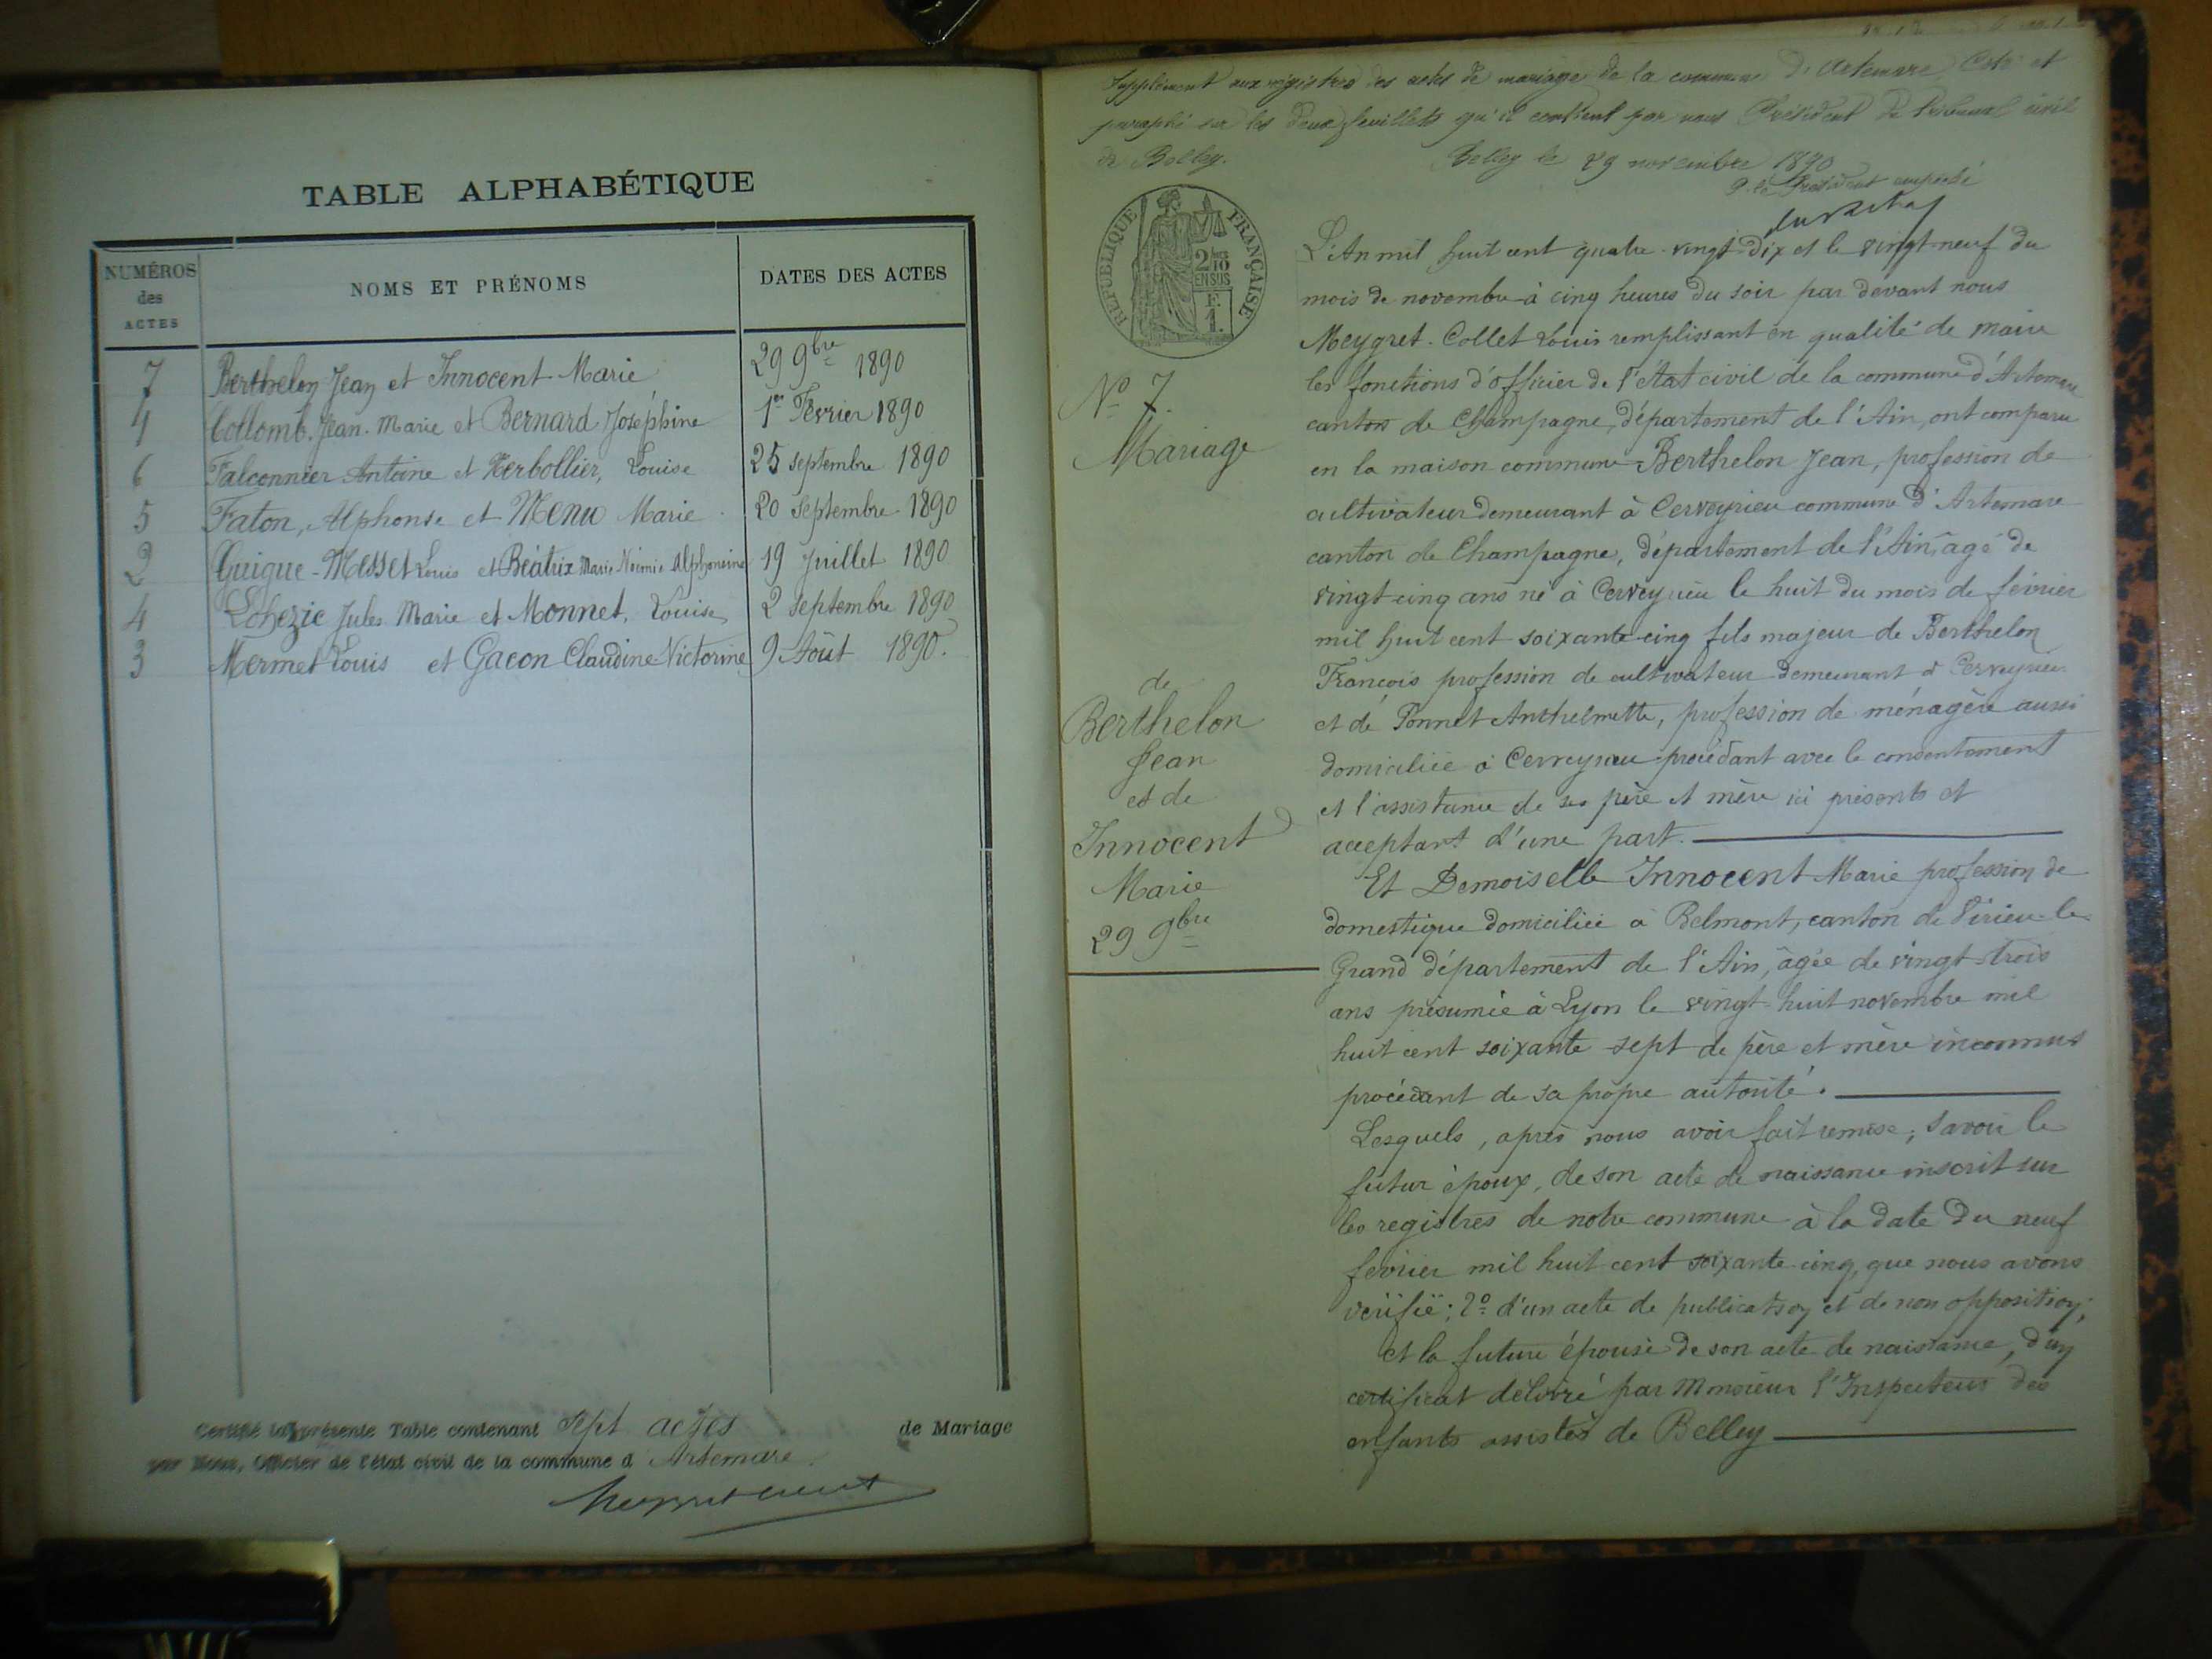 TABLE ALPHABÉTIQUE
NUMÉROS des ACTES
NOMS ET PRÉNOMS
DATES DES ACTES
7 Berthelon Jean et Innocent Marie 29 9bre 1890
1 Collomb, Jean-Marie et Bernard Joséphine 1er Février 1890
6 Falconnier Antoine et Herbollier, Louise 25 septembre 1890
5 Faton, Alphonse et Menu Marie 20 Septembre 1890
2 Guigue-Messet Louis et Béatrix Marie Noémie Alphonsine 19 Juillet 1890
4 Lohezic Jules Marie et Monnet, Louise 2 Septembre 1890
3 Mermet Louis et Gacon Claudine-Victorine 9 Août 1890.
Certifié la présente Table contenant sept actes de Mariage
par Nous, Officier de l'état civil de la commune d Artemare.
Supplément aux registres des actes de mariage de la commune d'Artemare, Coté et
paraphé sur les deux feuillets qu'il contient par nous Président du Tribunal civil
de Belley. Belley le 29 novembre 1890
P. le Président empêché
RÉPUBLIQUE FRANÇAISE
2/10
EN SUS
F.
1.
L'An mil huit cent quatre-vingt-dix et le vingt-neuf du
mois de novembre à cinq heures du soir par devant nous
Meygret-Collet Louis remplissant en qualité de maire
les fonctions d'officier de l'État civil de la commune d'Artemare
canton de Champagne, département de l'Ain, ont comparu
en la maison commune Berthelon Jean, profession de
cultivateur demeurant à Cerveyrieu commune d'Artemare
canton de Champagne, département de l'Ain, âgé de
vingt-cinq ans né à Cerveyrieu le huit du mois de février
mil huit cent soixante-cinq fils majeur de Berthelon
François profession de cultivateur demeurant à Cerveyrieu
et de Ponnet Anthelmette, profession de ménagère aussi
domiciliée à Cerveyrieu procédant avec le consentement
et l'assistance de ses père et mère ici présents et
acceptant d'une part.
Et Demoiselle Innocent Marie profession de
domestique domiciliée à Belmont, canton de Virieu-le-
Grand département de l'Ain, âgée de vingt-trois
ans présumée à Lyon le vingt-huit novembre mil
huit cent soixante-sept de père et mère inconnus
procédant de sa propre autorité.
Lesquels, après nous avoir fait remise, savoir le
futur époux, de son acte de naissance inscrit sur
les registres de notre commune à la date du neuf
février mil huit cent soixante-cinq, que nous avons
vérifié; 2º d'un acte de publication et de non opposition;
et la future épouse de son acte de naissance, d'un
certificat délivré par Monsieur l'Inspecteur des
enfants assistés de Belley
Nº 7.
Mariage
de
Berthelon
Jean
et de
Innocent
Marie
29 9bre